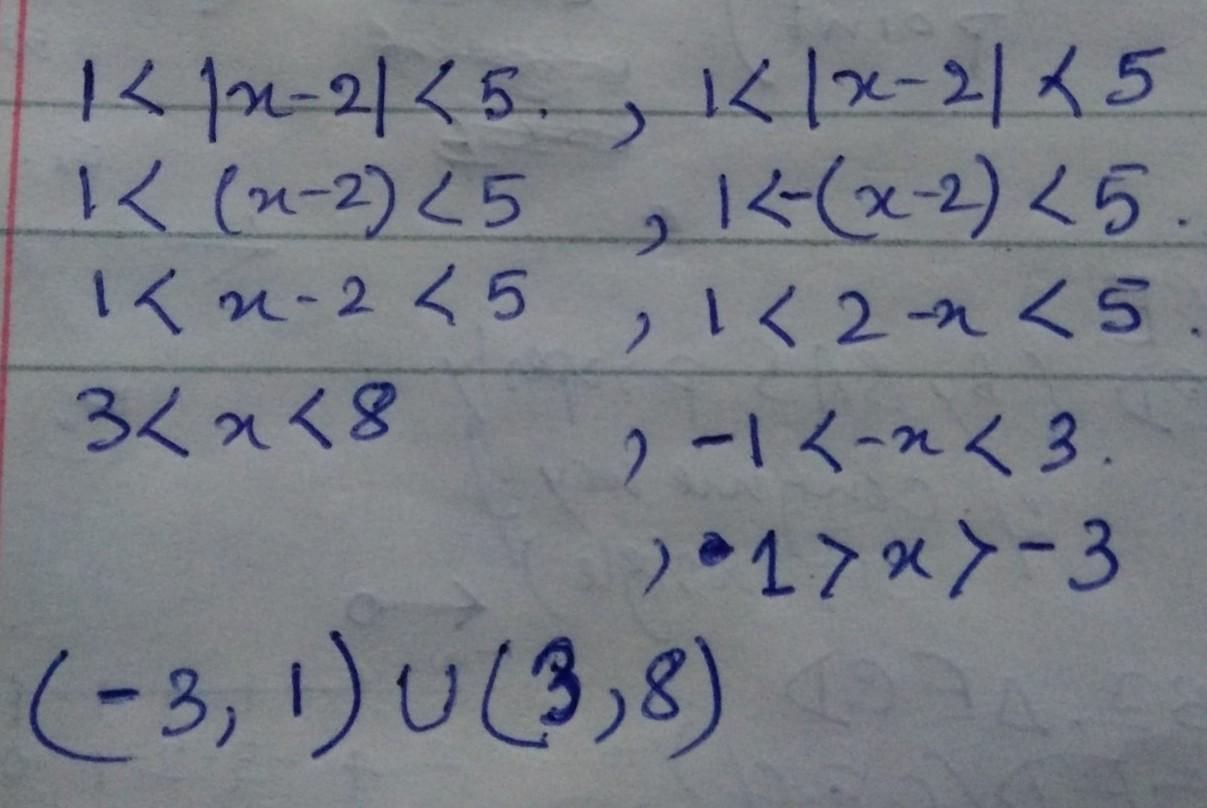 1 < |x-2| < 5. , 1 < |x-2| < 5
1 < (x-2) < 5 , 1 < -(x-2) < 5.
1 < x-2 < 5 , 1 < 2-x < 5.
3 < x < 8 , -1 < -x < 3.
, 1 > x > -3
(-3, 1) ∪ (3,8)